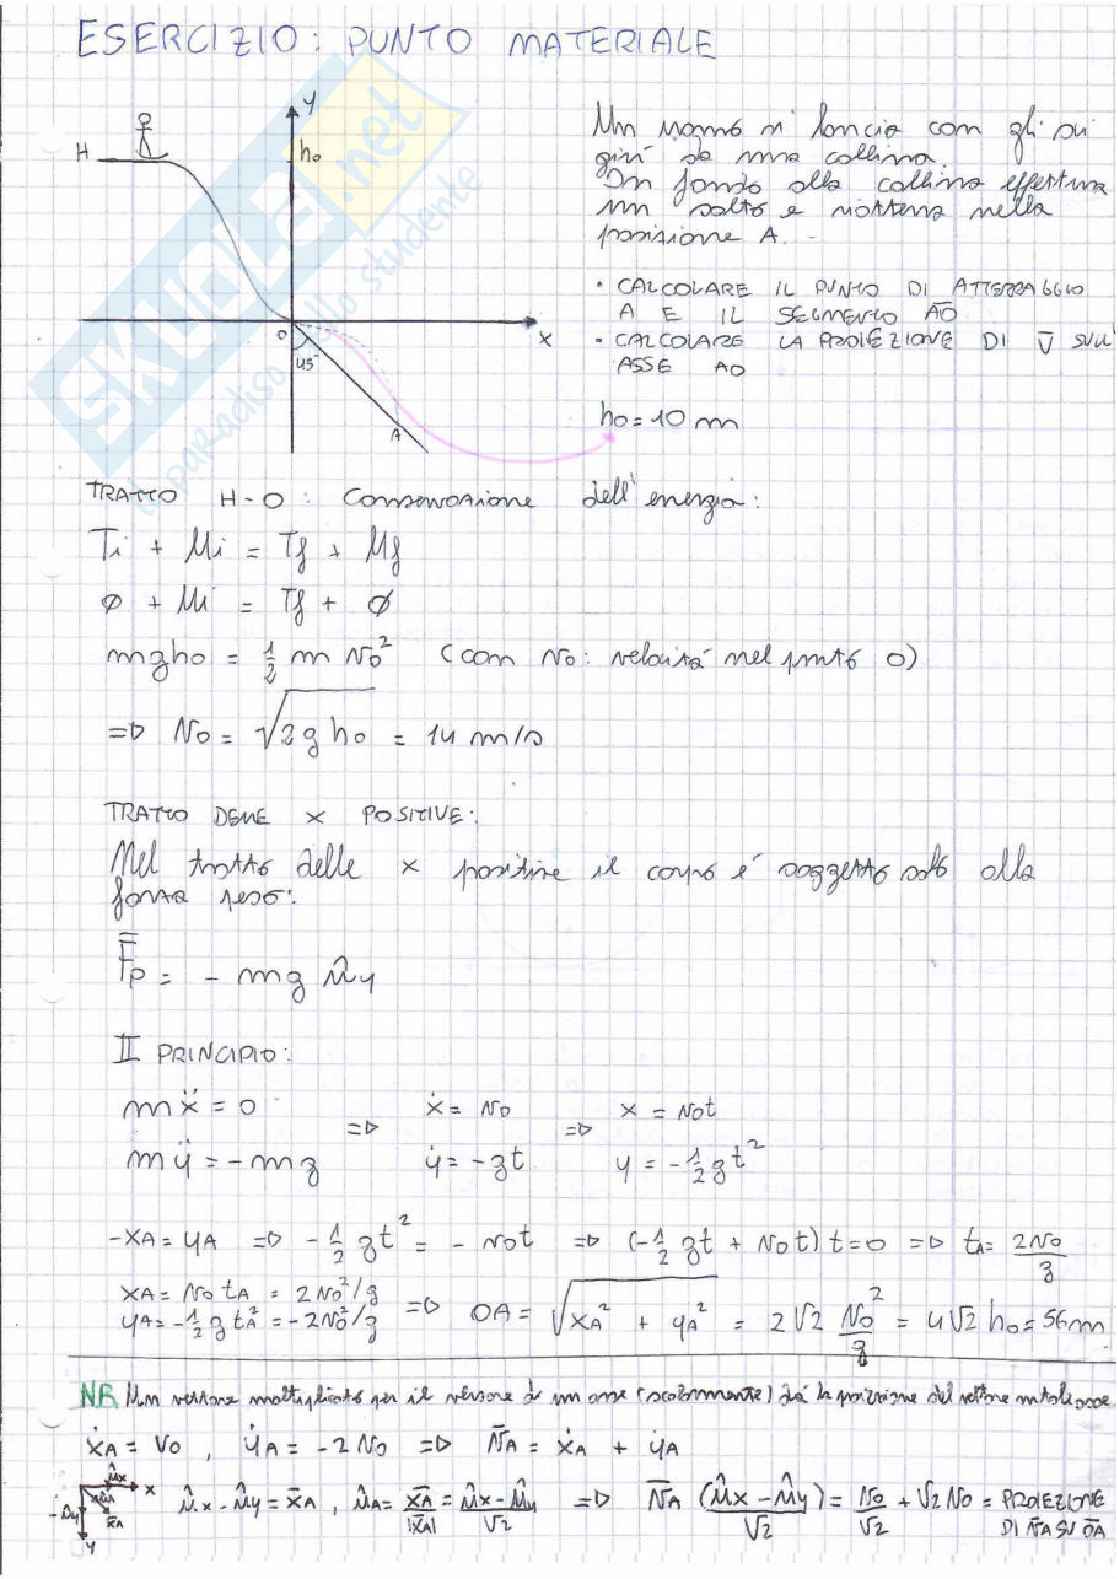 ESERCIZIO: PUNTO MATERIALE
y
H
h₀
O
x
45°
A
Un uomo si lancia con gli sci
giù da una collina.
In fondo alla collina effettua
un salto e atterra nella
posizione A.
• CALCOLARE IL PUNTO DI ATTERRAGGIO
A E IL SEGMENTO A̅O̅
• CALCOLARE LA PROIEZIONE DI v̅ SULL'
ASSE AO
h₀ = 10 m
SKUOLA.net
il paradiso dello studente
TRATTO H-O: Conservazione dell'energia:
Ti + Ui = Tf + Uf
∅ + Ui = Tf + ∅
mgh₀ = 1/2 m v₀² (con v₀: velocità nel punto O)
=> v₀ = √(2gh₀) = 14 m/s
TRATTO DELLE x POSITIVE:
Nel tratto delle x positive il corpo è soggetto solo alla
forza peso:
F̅p = - mg ûy
II PRINCIPIO:
mẍ = 0 => ẋ = v₀ => x = v₀t
mÿ = -mg ẏ = -gt y = -1/2 gt²
-xA = yA => -1/2 gt² = - v₀t => (-1/2 gt + v₀t) t = 0 => tA = 2v₀/g
xA = v₀ tA = 2v₀²/g
yA = -1/2 g tA² = -2v₀²/g => OA = √(xA² + yA²) = 2√2 v₀²/g = 4√2 h₀ = 56 m
NB Un vettore moltiplicato per il versore di un asse (scalarmente) dà la proiezione del vettore su tale asse
ẋA = v₀, ẏA = -2v₀ => v̅A = ẋA + ẏA
ûx
x
-ûy
ûA
x̅A
y
ûx - ûy = x̅A, ûA = x̅A/|x̅A| = (ûx - ûy)/√2 => v̅A (ûx - ûy)/√2 = v₀/√2 + √2 v₀ = PROIEZIONE
DI v̅A SU O̅A